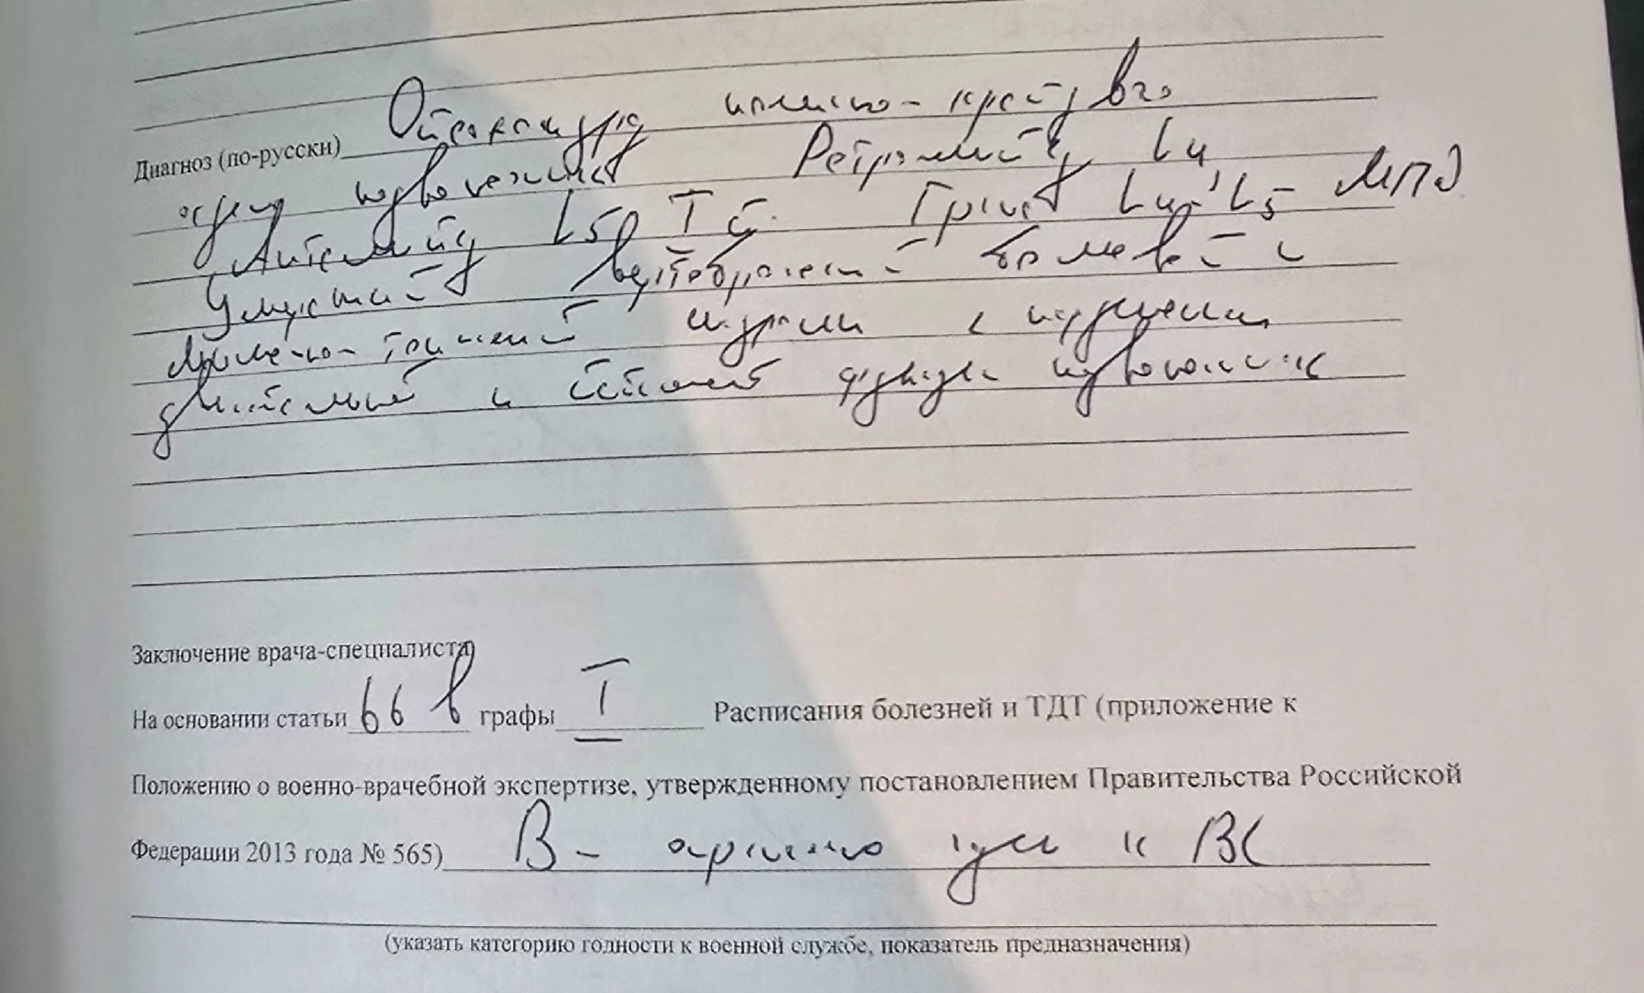 Диагноз (по-русски) Остеохондроз пояснично-крестцового
отдела позвоночника Ретролистез L4
Антелистез L5 I ст. Грыжа L4-L5 МПД
Умеренный вертеброгенный болевой и
мышечно-тонический синдром с нарушением
динамической и статической функции позвоночника
Заключение врача-специалиста
На основании статьи 66 в графы I Расписания болезней и ТДТ (приложение к
Положению о военно-врачебной экспертизе, утвержденному постановлением Правительства Российской
Федерации 2013 года № 565) В - ограничено годен к ВС
(указать категорию годности к военной службе, показатель предназначения)